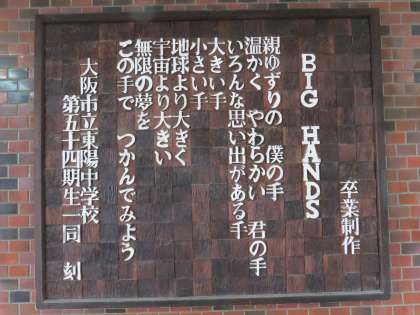 卒業制作
BIG HANDS
親ゆずりの 僕の手
温かく やわらかい 君の手
いろんな思い出がある手
大きい手
小さい手
地球より大きく
宇宙より大きい
無限の夢を
この手で つかんでみよう
大阪市立東陽中学校
第五十四期生一同 刻